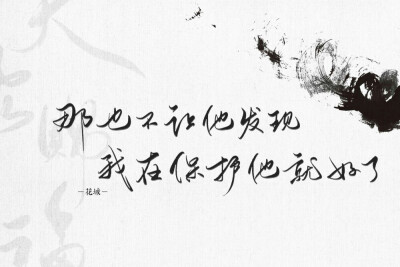 天官赐福
那也不让他发现
我在保护他就好了
－花城－